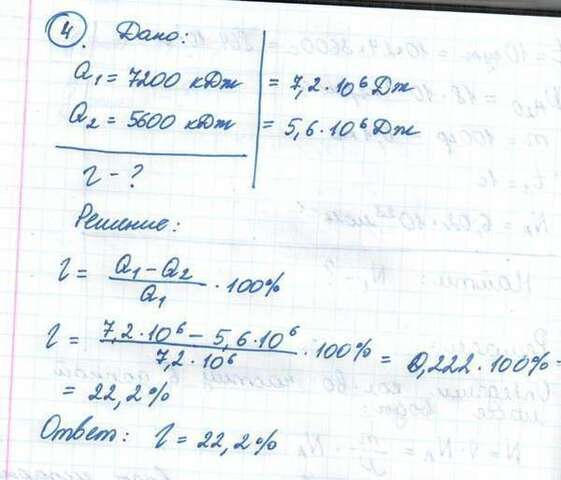 4 Дано:
Q₁ = 7200 кДж = 7,2·10⁶ Дж
Q₂ = 5600 кДж = 5,6·10⁶ Дж
η - ?
Решение:
η = (Q₁ - Q₂)/Q₁ · 100%
η = (7,2·10⁶ - 5,6·10⁶)/(7,2·10⁶) · 100% = 0,222·100% =
= 22,2%
Ответ: η = 22,2%